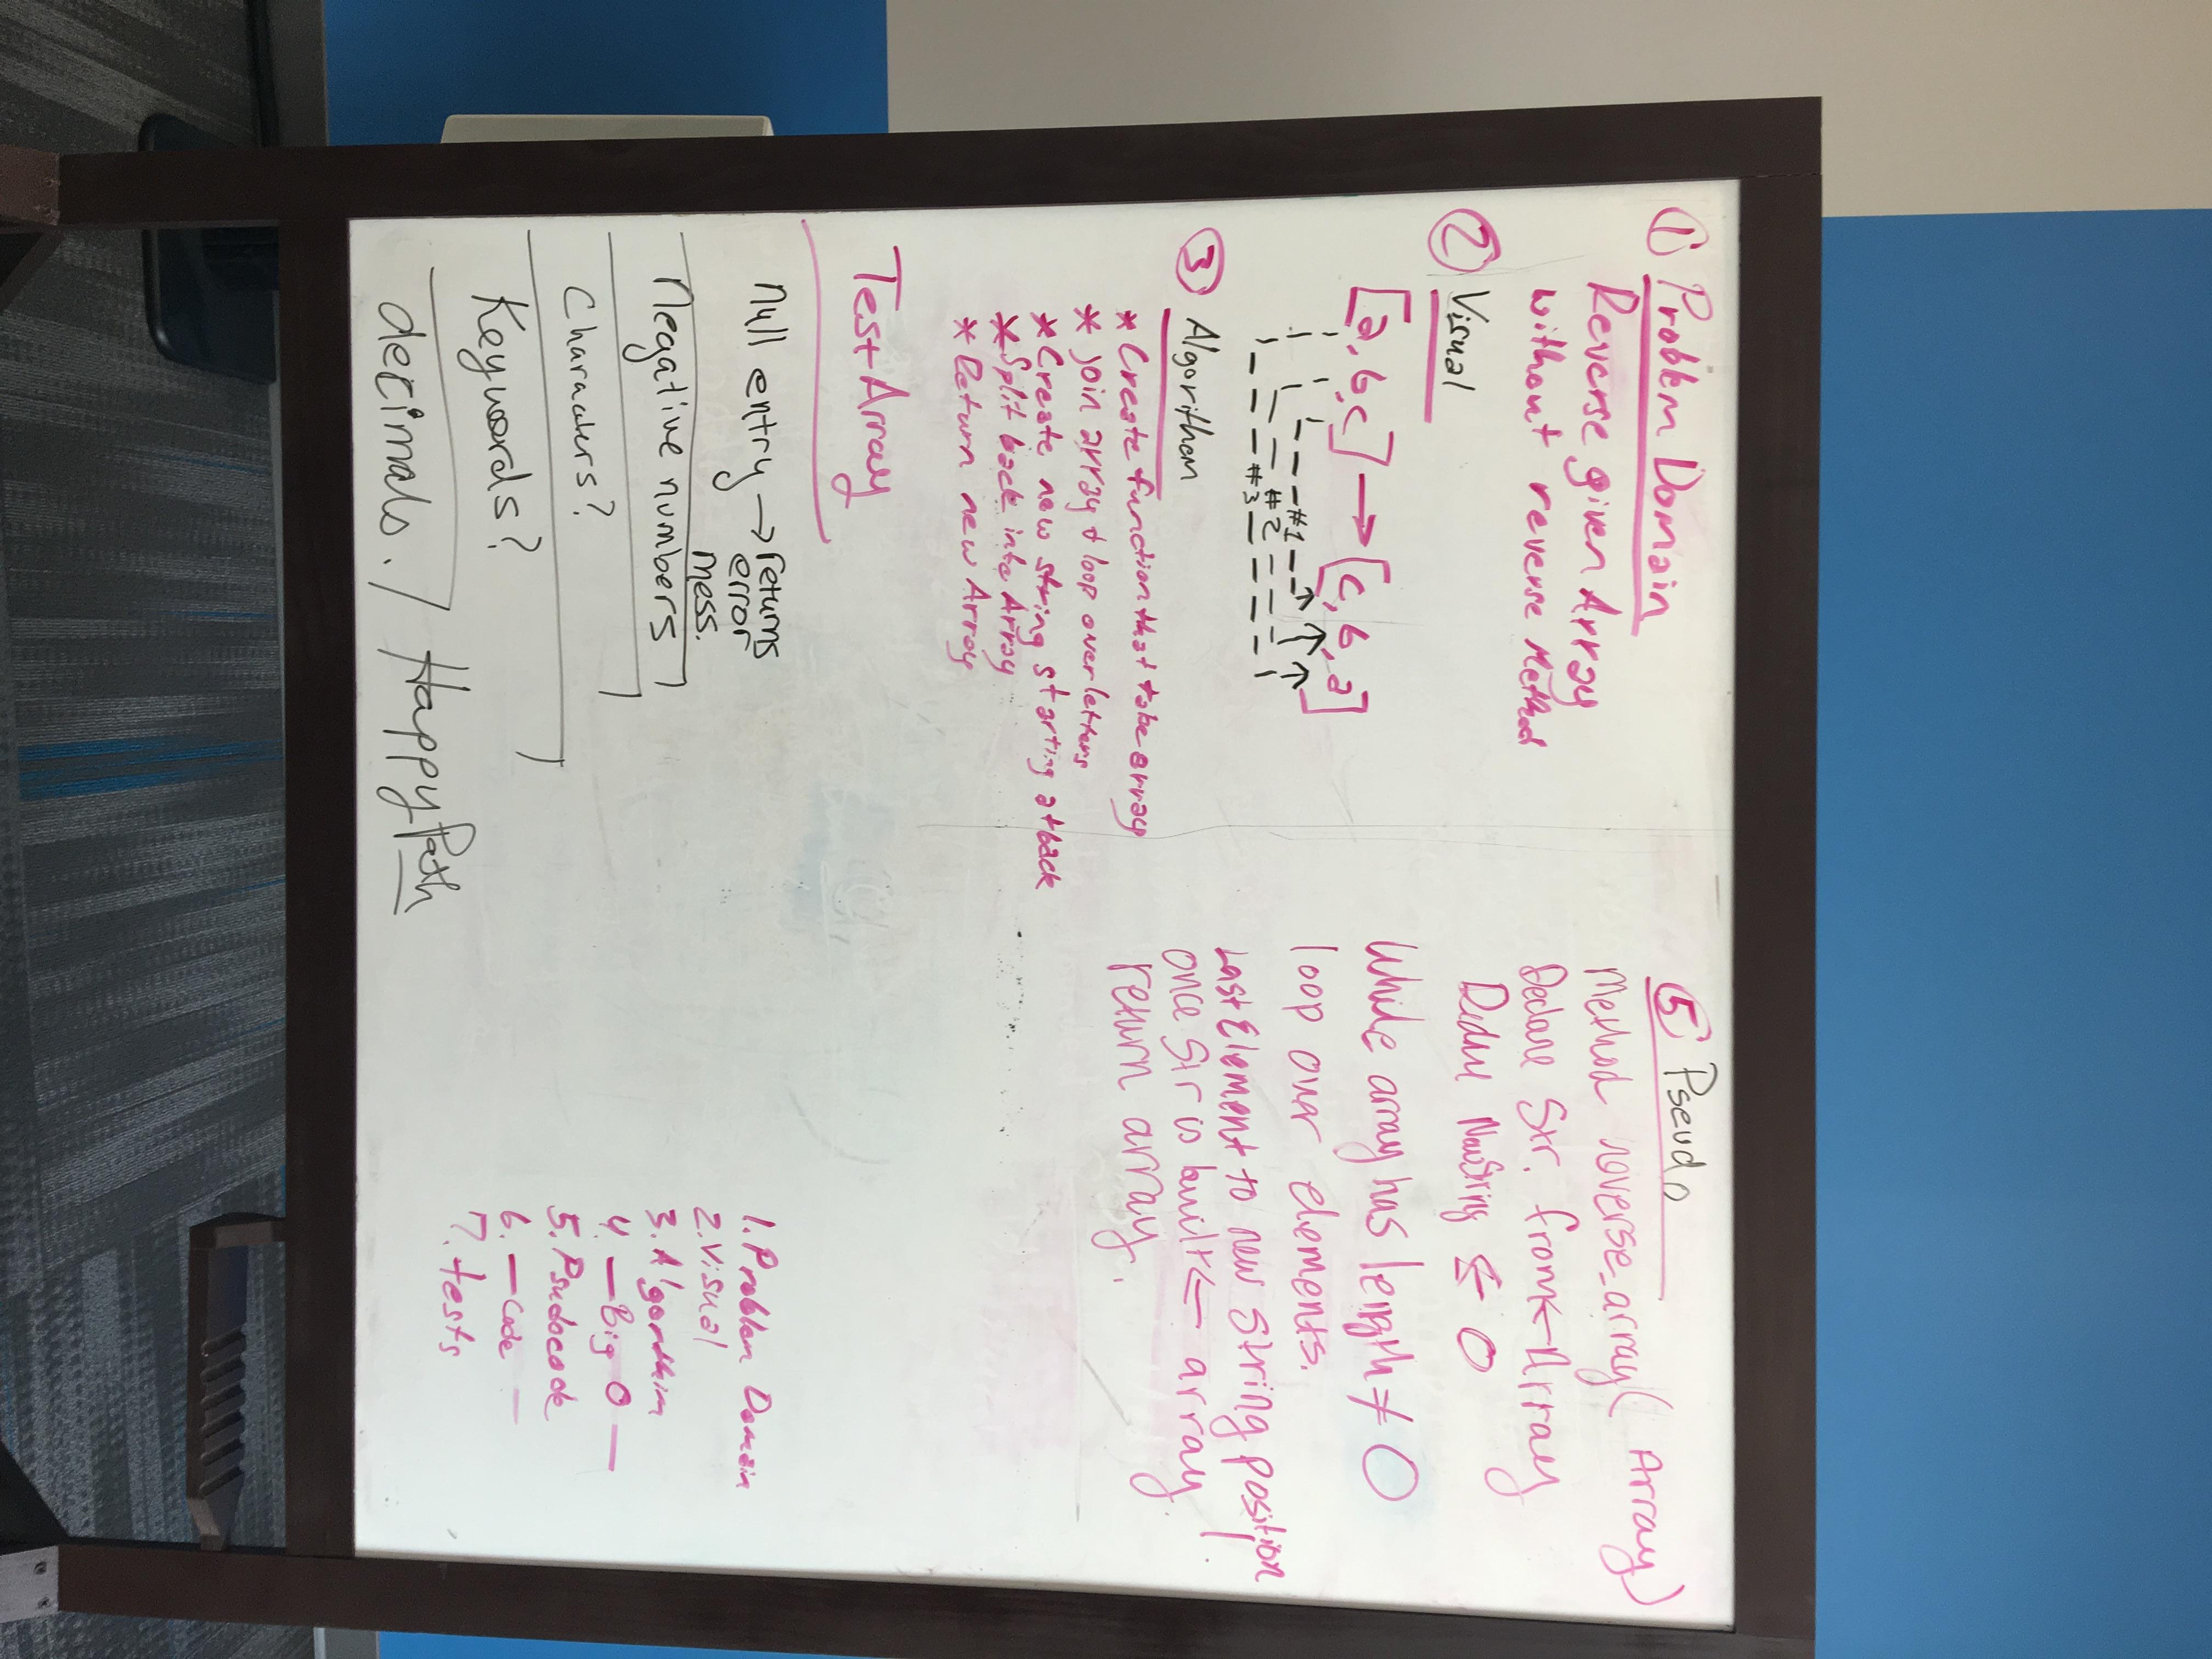 ① Problem Domain
Reverse given Array
without reverse Method
② Visual
[a, b, c] → [c, b, a]
#1
#2
#3
③ Algorithem
* Create function that take array
* Join array & loop over letters
* Create new string starting at back
* Split back into Array
* Return new Array
Test Array
Null entry → returns
error
mess.
Negative numbers
Characters?
Keywords?
decimals. / Happy Path
⑤ Pseudo
Method reverse_array( Array)
Declare Str. from ← Array
Declare NewString ← 0
While array has length ≠ 0
loop over elements.
Last Element to new string position
once Str is built ← array!
return array.
1. Problem Domain
2. Visual
3. Algorthim
4. — Big O —
5. Psudocode
6. — Code —
7. tests